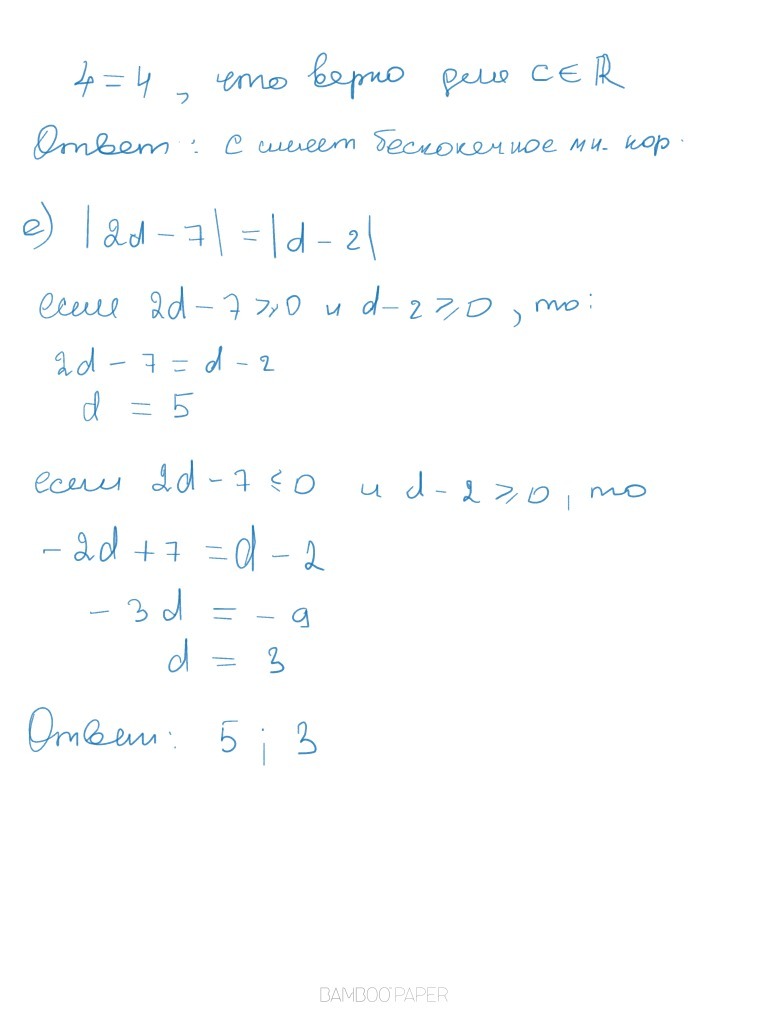 4 = 4, что верно для C ∈ ℝ
Ответ: C имеет бесконечное мн. кор.
е) |2d - 7| = |d - 2|
если 2d - 7 ≥ 0 и d - 2 ≥ 0, то:
2d - 7 = d - 2
d = 5
если 2d - 7 ≤ 0 и d - 2 ≥ 0, то
- 2d + 7 = d - 2
- 3d = - 9
d = 3
Ответ: 5; 3
BAMBOO PAPER